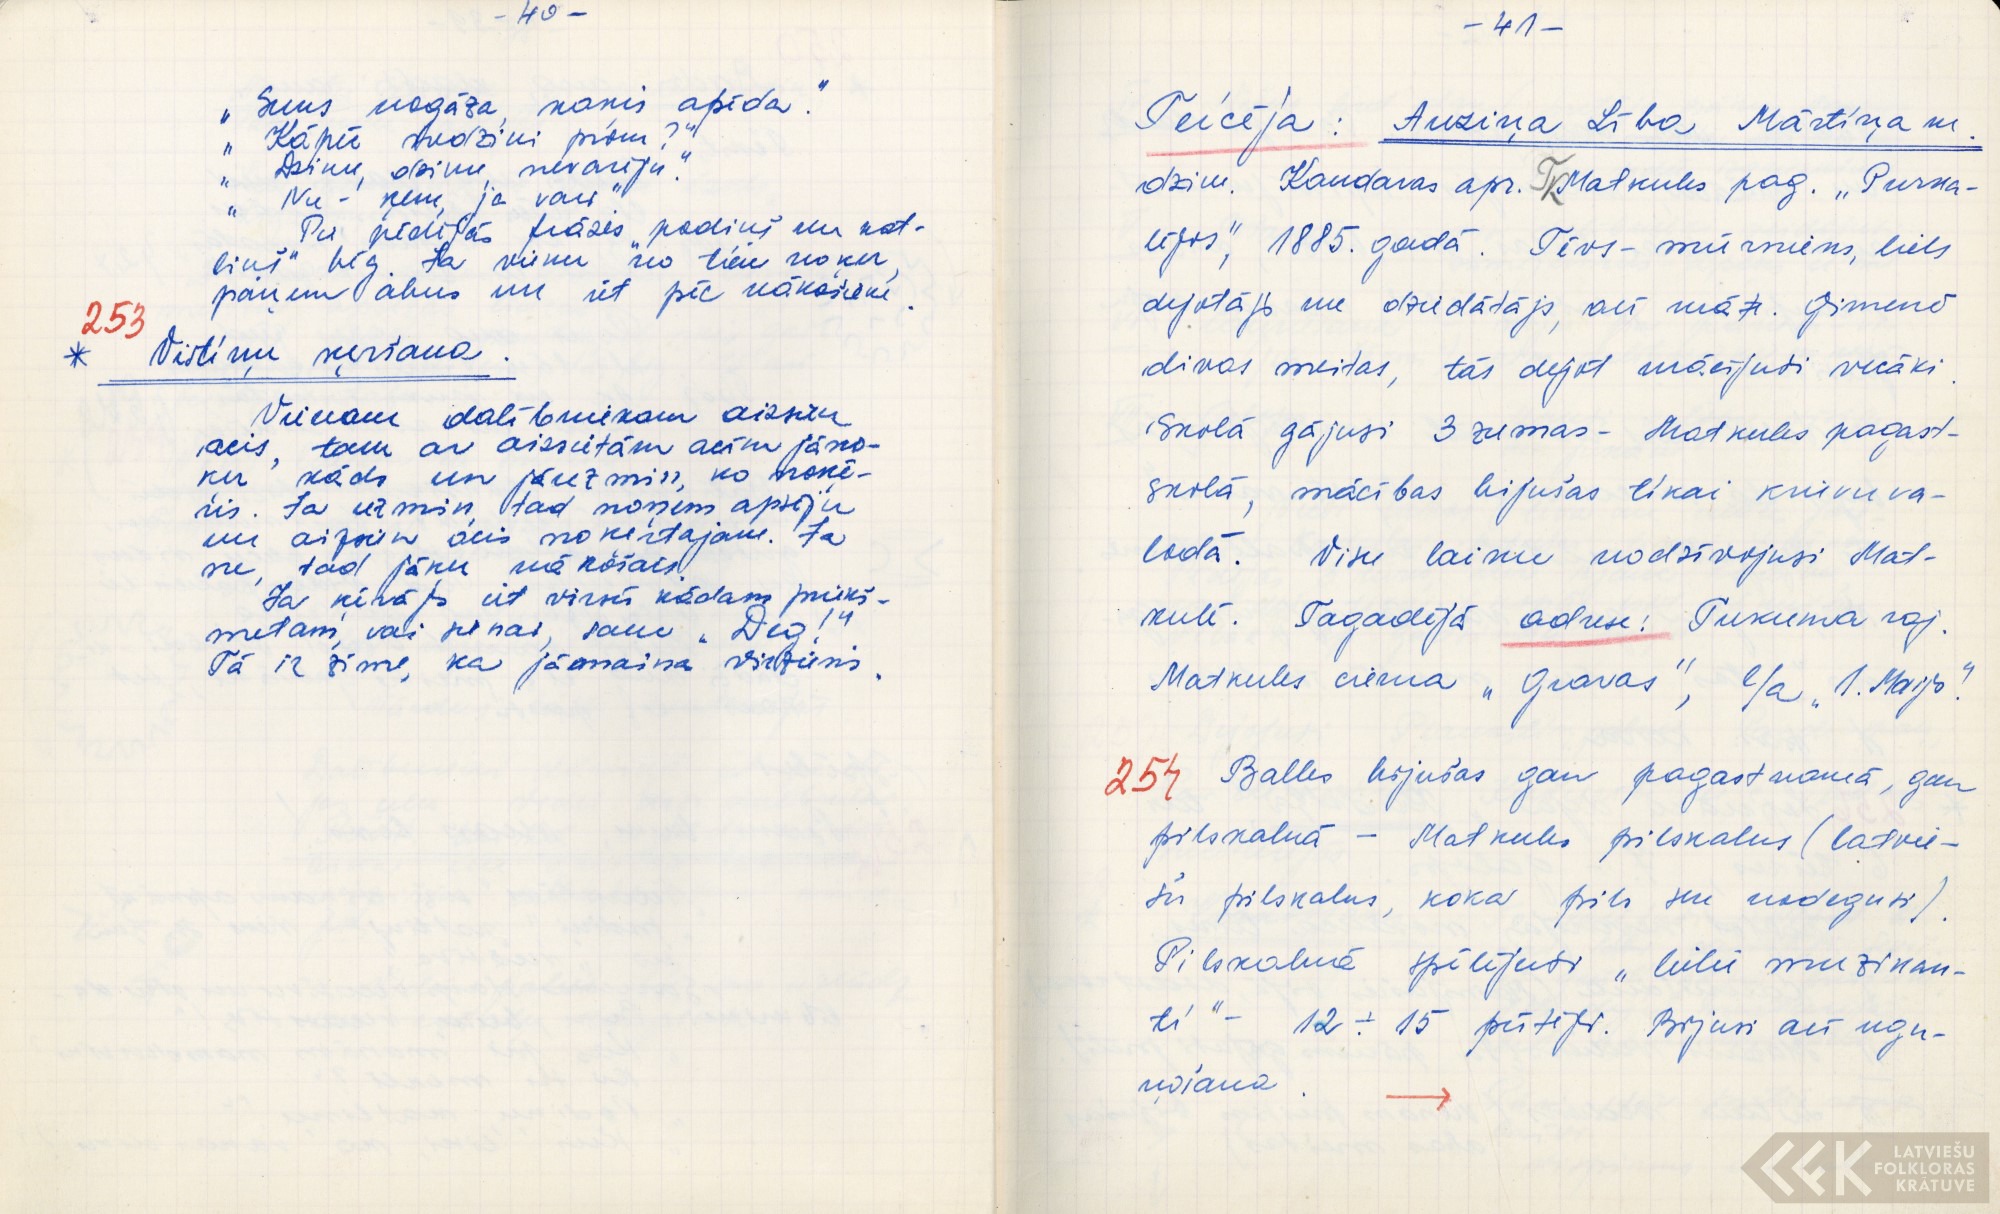 - 40 -
„Suns nogāza, kaķis apēda."
„Kāpēc nedzini prom?"
„Dzinu, dzinu, nevarēju."
„Nu - ķer, ja vari"
Pie pēdējās frāzes „podiņš un kat-
liņš" bēg. Ja vienu no tiem noķer,
paņem abus un iet pēc nākošiem.
253
* Vistiņu ķeršana.
Vienam dalībniekam aizsien
acis, tam ar aizsietām acīm jāno-
ķer kāds un jāuzmin, ko noķē-
ris. Ja uzmin, tad noņem apsēju
un aizsien acis noķertajam. Ja
ne, tad jāķer nākošais.
Ja ķērājs iet virsū kādam priekš-
metam, vai sienai, sauc „Deg!"
Tā ir zīme, ka jāmaina virziens.
- 41 -
Teicēja: Auziņa Lība Mārtiņa m.
dzim. Kandavas apr. Tk Matkules pag. „Purka-
lējos", 1885. gadā. Tēvs - mūrnieks, liels
dejotājs un dziedātājs, arī māte. Ģimenē
divas meitas, tās dejot mācījuši vecāki.
Skolā gājusi 3 ziemas - Matkules pagast-
skolā, mācības bijušas tikai krievu va-
lodā. Visu laiku nodzīvojusi Mat-
kulē. Tagadējā adrese: Tukuma raj.
Matkules ciema „Gravas", l/a „1. Maijs".
254 Balles bijušas gan pagastnamā, gan
pilskalnā - Matkules pilskalns (latvie-
šu pilskalns, koka pils sen nodegusi).
Pilskalnā spēlējuši „lielie muzikan-
ti" - 12 ÷ 15 pūtēji. Bijusi arī ugu-
ņošana. →
LATVIEŠU
FOLKLORAS
KRĀTUVE